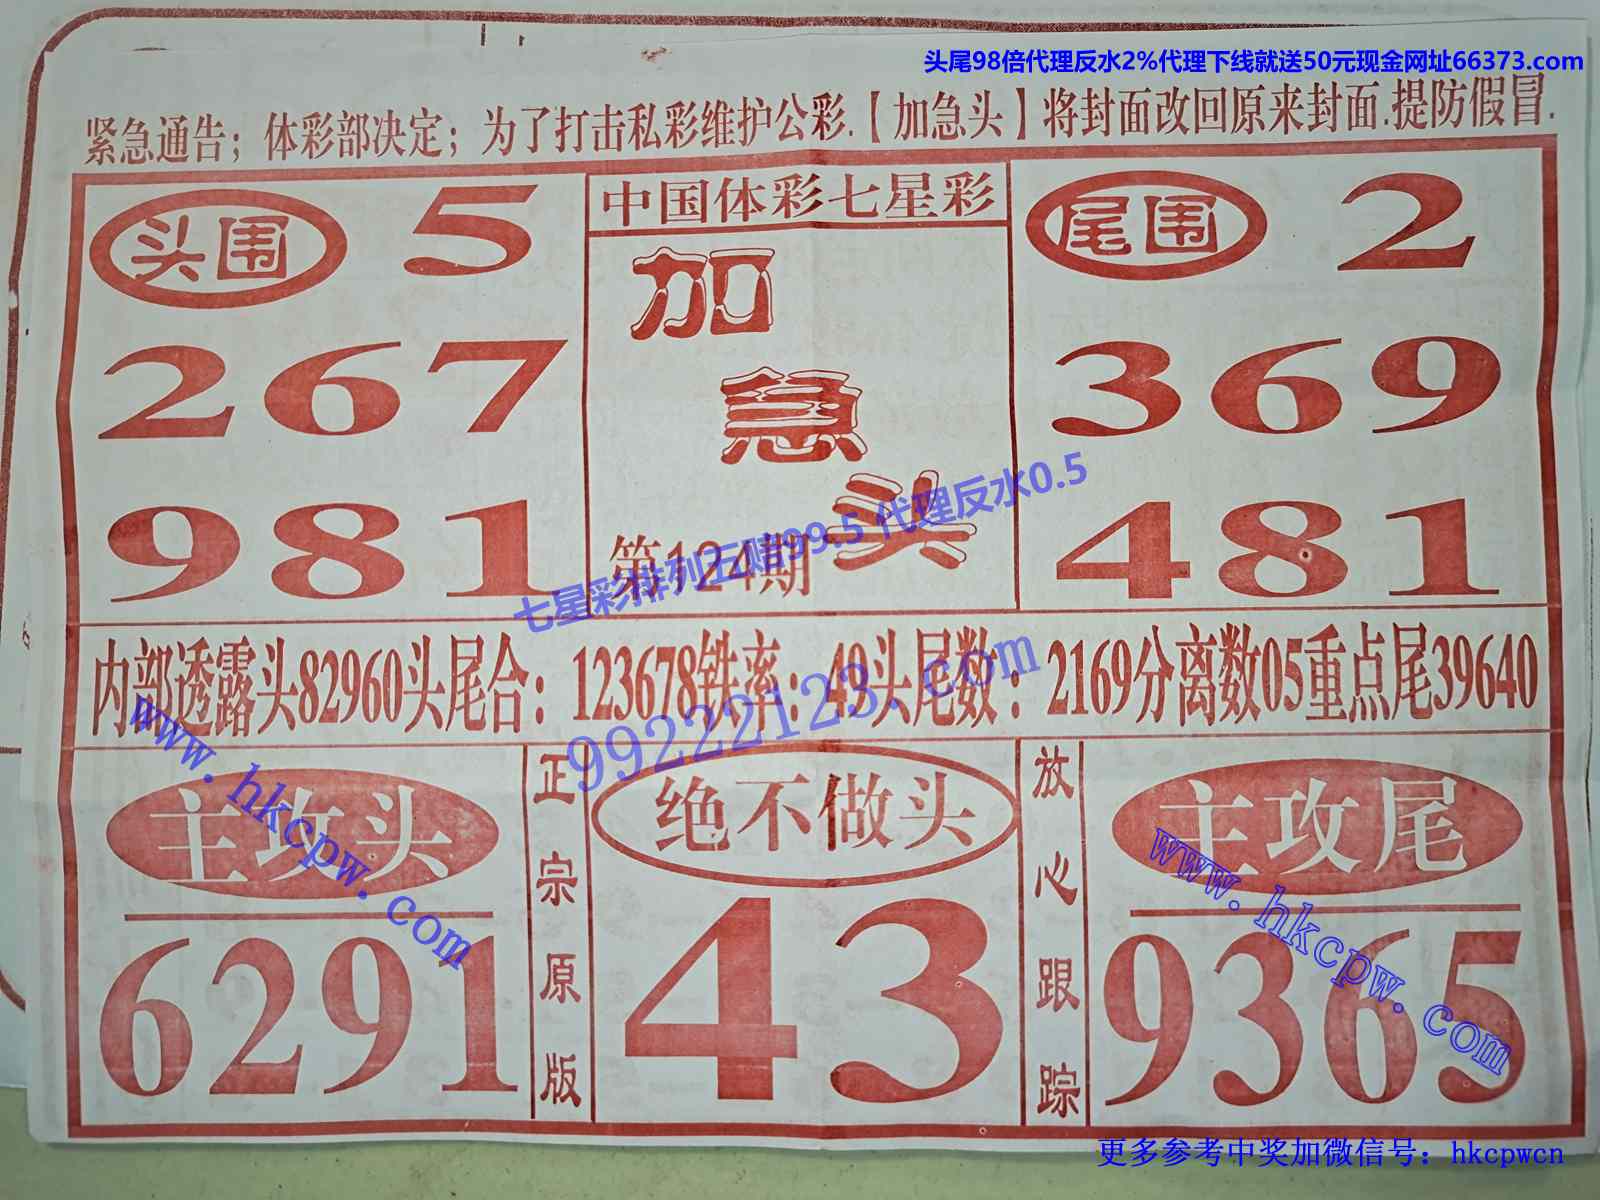 头尾98倍代理反水2%代理下线就送50元现金网址66373.com
紧急通告；体彩部决定；为了打击私彩维护公彩.【加急头】将封面改回原来封面.提防假冒.
头围 5
267
981
中国体彩七星彩
加
急
头
第124期
七星彩排列五赔99.5 代理反水0.5
尾围 2
369
481
内部透露头82960头尾合：123678铁率：49头尾数：2169分离数05重点尾39640
99222123.com
www.hkcpw.com
主攻头
6291
正宗原版
绝不做头
43
放心跟踪
主攻尾
9365
www.hkcpw.com
更多参考中奖加微信号：hkcpwcn